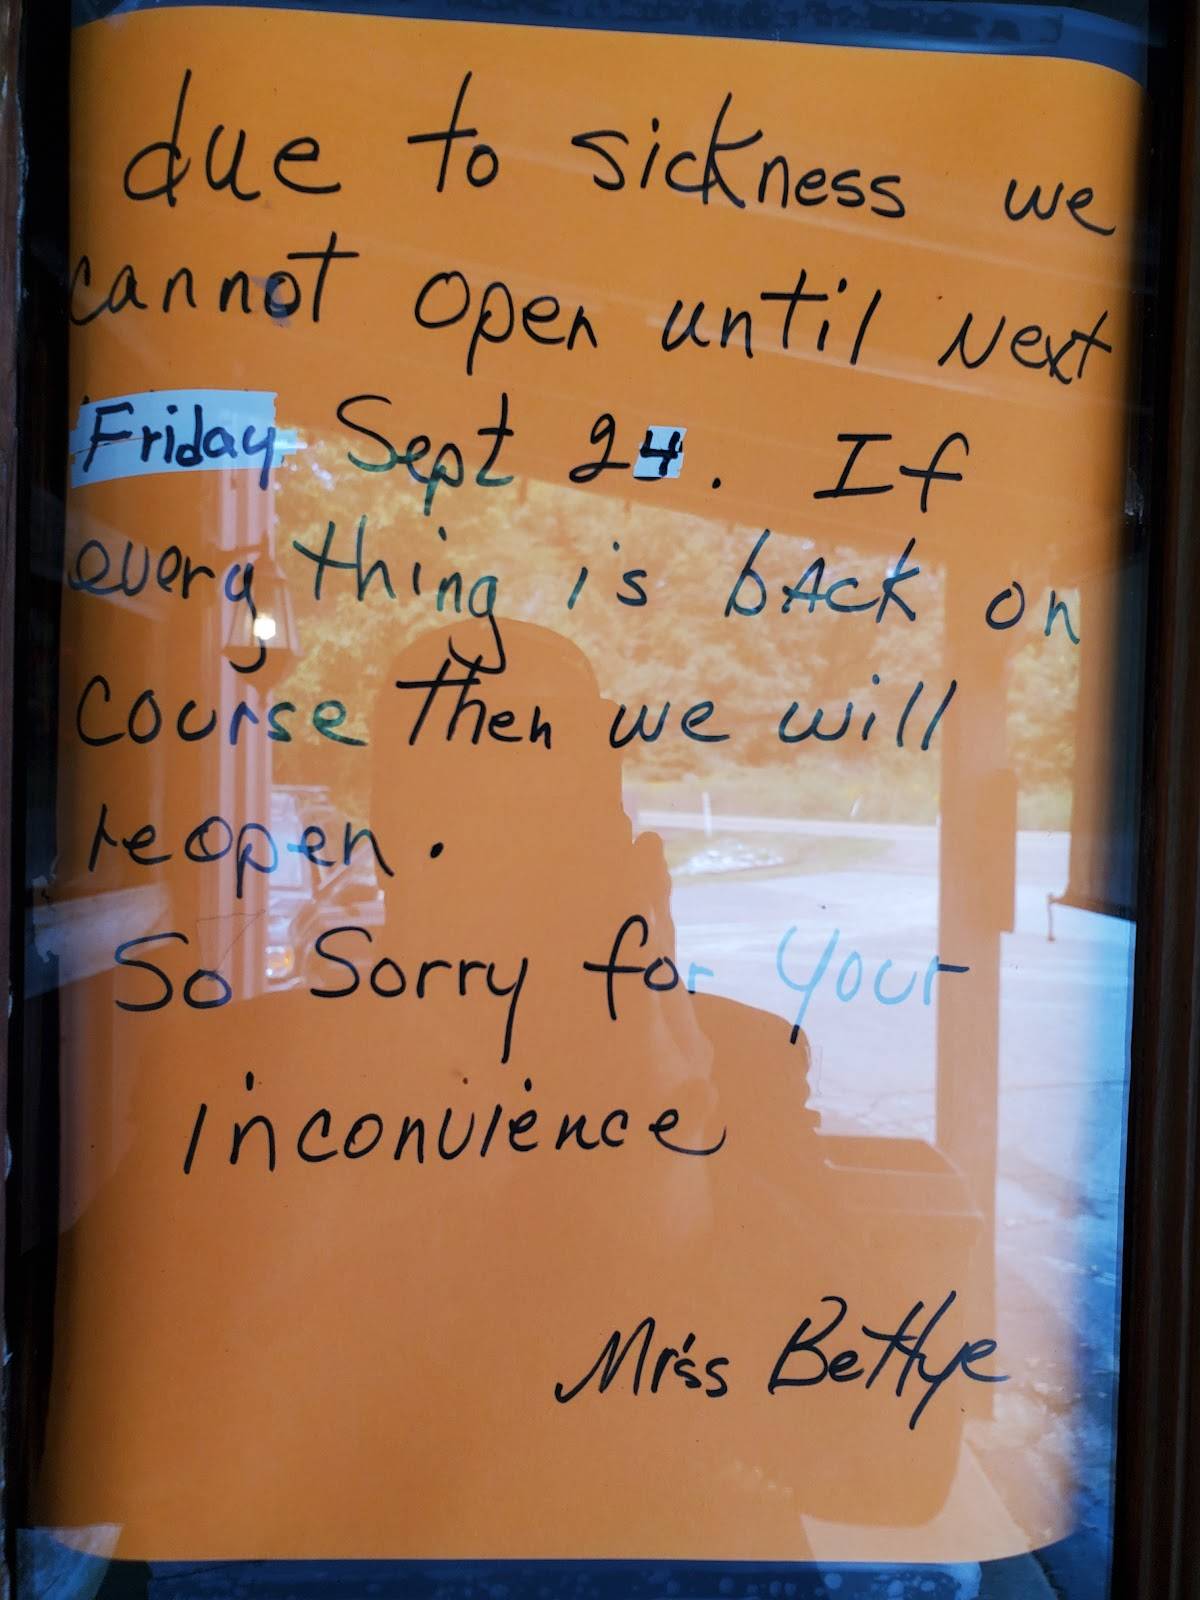 due to sickness we
cannot open until Next
Friday Sept 24. If
every thing is bAck on
course then we will
reopen.
So Sorry for your
inconvience
Miss Bettye